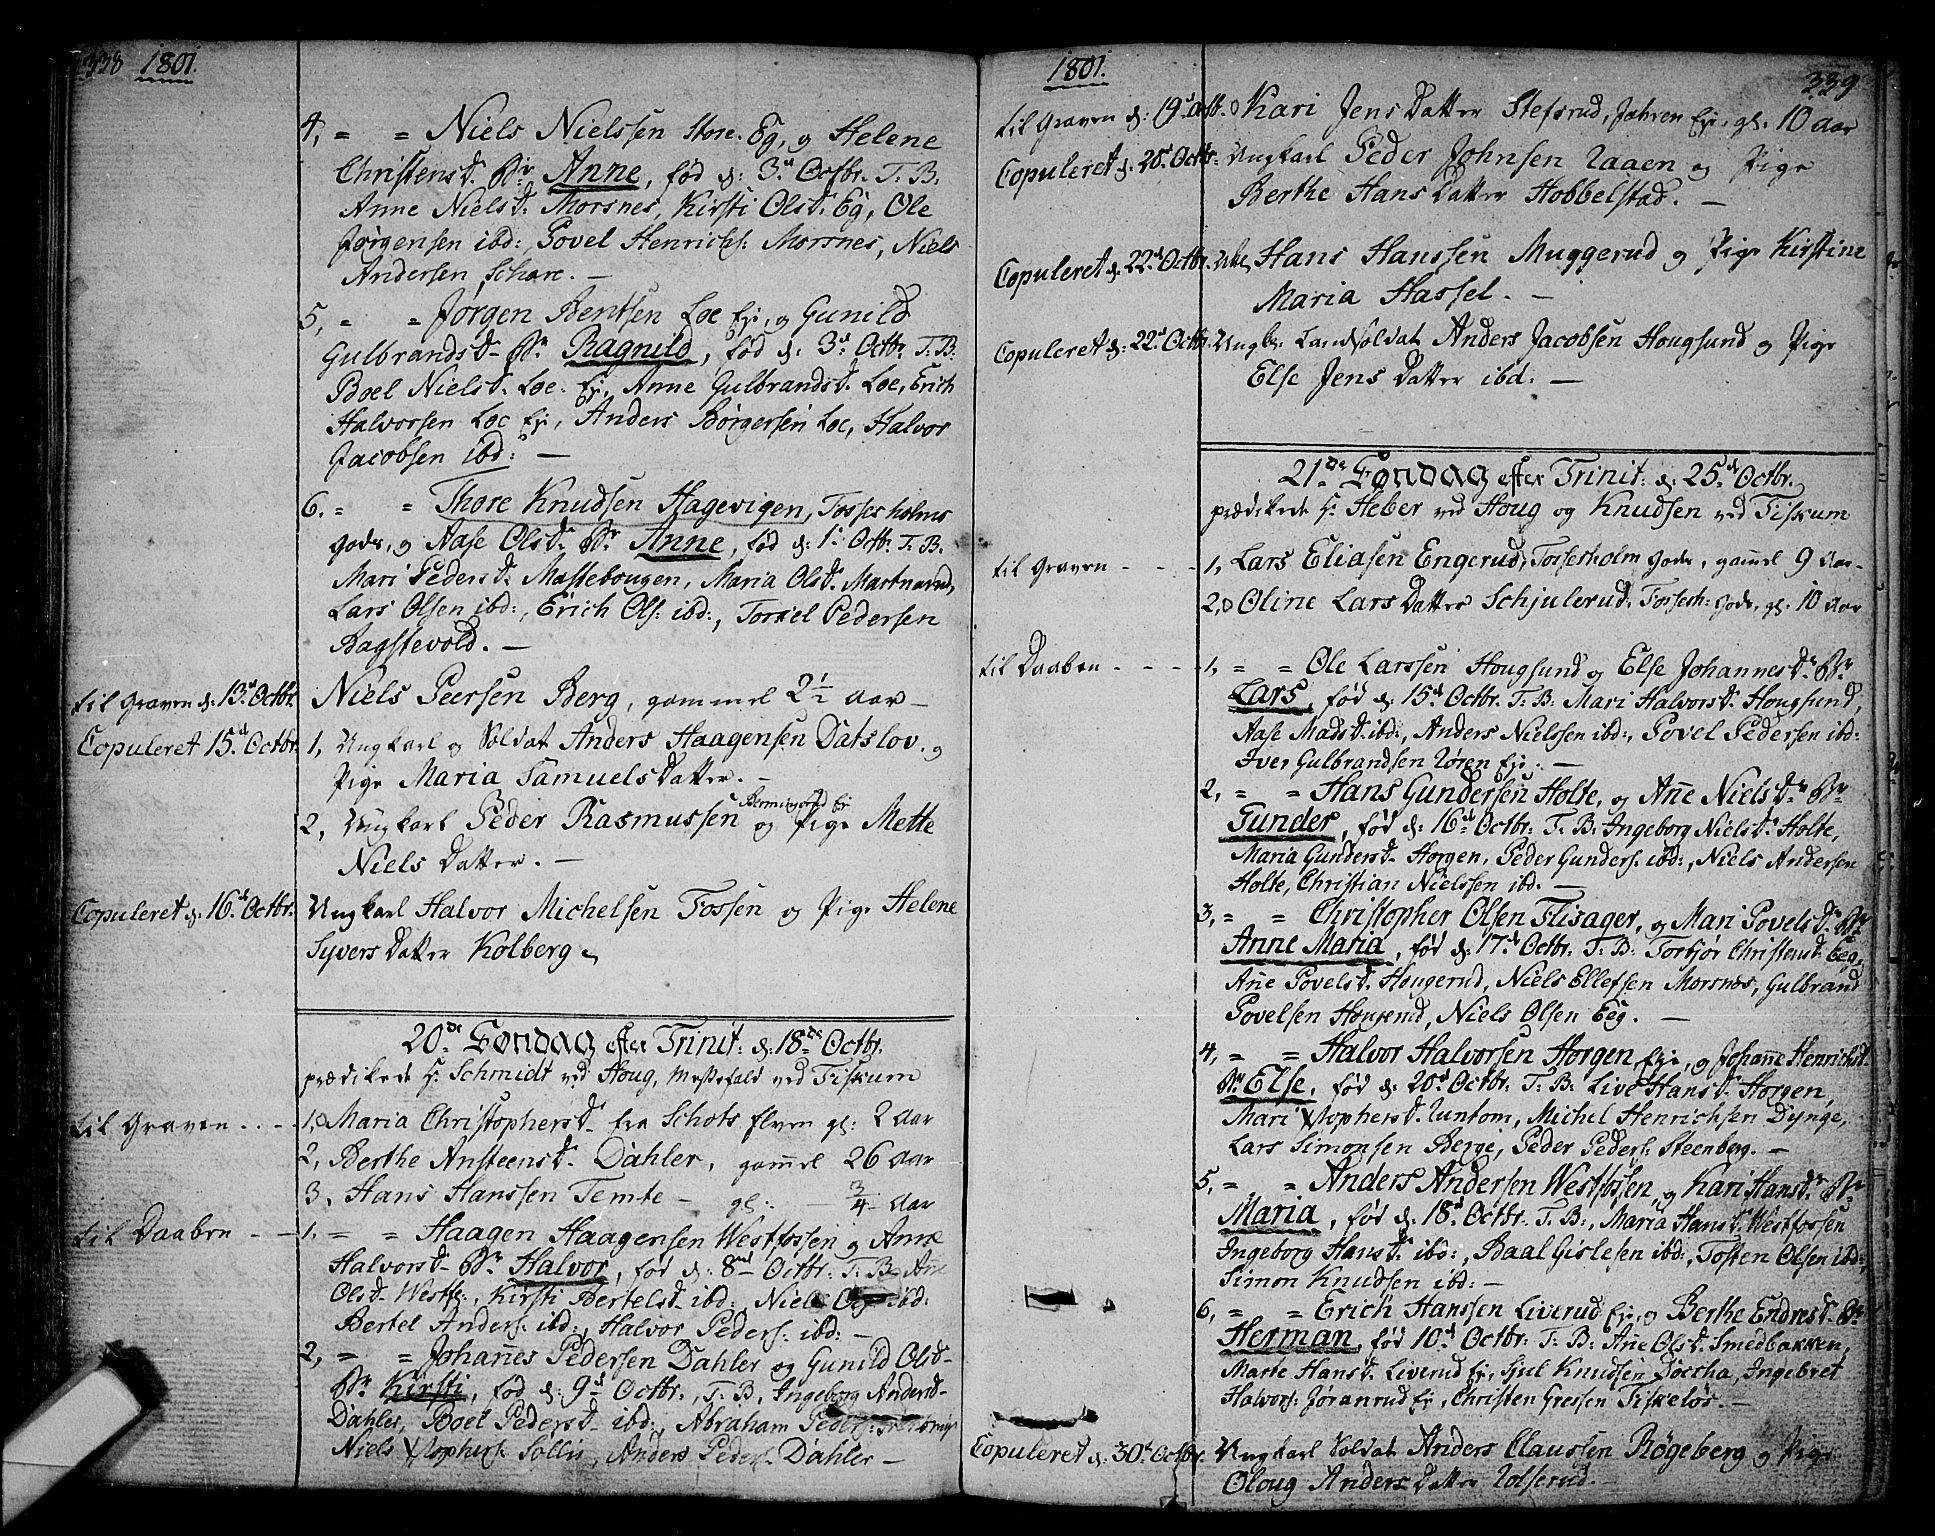 338 1801.
4, = = Niels Nielssen Store. Eg, og Helene
Christensd. Br Anne, fød d: 3d Octbr. T. B.
Anne Nielsd: Morsnes, Kirsti Olsd. Eg, Ole
Jørgensen ibd:, Povel Henrichs: Morsnes, Niels
Andersen, Schare. —
5, = = Jørgen Bentsen Loe Eje, og Gunild
Gulbrandsd- Br Ragnild, fød d: 3d Octbr. T. B.
Boel Nielsd. Loe. Ej, Anne Gulbrandsd. Loe, Erich
Halvorsen Loe Ej, Anders Børgersen Loe, Halvor
Jacobsen ibd: —
6. = = Thore Knudsen Hagevigen, Fossesholms
gods, og Aase Olsd. Br Anne, fød d: 1. Octbr. T. B.
Mari Pedersd. Mastebougen, Maria Olsd.
Lars Olsen ibd:, Erich Ols: ibd:, Torkel Pedersen
Bagstevold. —
til Graven d: 13d Octbr. Niels Peersen Berg, gammel 2½ Aar —
Copuleret 15d Octbr. 1, Ungkarl og Soldat Anders Haagensen Datslov. og
Pige Maria Samuels Datter. —
2, Ungkarl Peder Rasmussen og Pige Mette
Niels Datter. —
Copuleret d: 16d Octbr. Ungkarl Halvor Michelsen Fossen og Pige Helene
Syvers Datter Kolberg
20de Søndag efter Trinit: d: 18de Octbr.
prædikede H: Schmidt ved Houg, Messefald ved Fiskum
til Graven .... 1, Maria Christophersd- fra Schots elven gl: 2 Aar
2, Berthe Ansteensd. Dahler, gammel 26 Aar
3, Hans Hanssen Temte — gl: 3/4 Aar
til Daaben - - 1. = = Haagen Haagensen Westfossen og Anne
Halvorsd- Br Halvor, fød d: 8d Octbr: T. B. Ane
Olsd- Westf:, Kirsti Bertelsd- ibd:, Niels ibd:
Bertel Anders: ibd:, Halvor Peders: ibd: —
2, = = Johannes Pedersen Dahler og Gunild Olsd-
Br Kirsti, fød d: 9d Octbr., T. B. Ingeborg Andersd-
Dahler, Boel Pedersd- ibd:, Abraham Peders:
Niels Xstophers: Sollie, Anders Peders- Dahler —
1801. 339
til Graven d: 19d Octb. Kari Jens Datter Stefsrud, Jahren Eje. gl: 10 Aar
Copuleret d: 20d Octbr. Ungkarl Peder Johnsen Aaen og Pige
Berthe Hans Datter Hobbelstad. —
Copuleret d: 22d Octbr. Hans Hanssen Muggerud og Pige Kirstine
Maria Hassel. —
Copuleret d: 22d Octbr. Ungk: Landsoldat Anders Jacobsen Hougsund og Pige
Else Jens Datter ibd: —
21de Søndag efter Trinit: d: 25d Octbr.
prædikede H: Heber ved Houg og Knudsen ved Fiskum
til Graven - - - - 1, Lars Eliasen Engerud, Fossesholm Gods, gamel 9 Aar-
2, Oline Lars Datter Schjulerud. Fossesh: Gods, gl: 10 Aar
til Daaben - - - - 1, = = Ole Larssen Hougsund og Else Johannesd. Br
Lars, fød d: 15d Octbr. T. B: Mari Halvorsd. Hougsund,
Aase Madsd. ibd:, Anders Nielssen ibd:, Povel Pedersen ibd:
Iver Gulbrandsen Eje. —
2, = = Hans Gundersen Holte, og Ane Nielsd. Br
Gunder, fød d: 16d Octbr. T. B: Ingeborg Nielsd. Holte,
Maria Gundersd- Horgen, Peder Gunders: ibd:, Niels Andersen
Holte, Christian Nielssen ibd. —
3, = = Christopher Olsen Flisager, og Mari Povelsd. Br
Anne Maria, fød d: 17d Octbr. T. B: Torbjør Christensd. Eeg,
Ane Povelsd. Hougerud, Niels Ellefsen Morsnes, Gulbrand
Povelsen Hougerud, Niels Olsen Eeg. —
4, = = Halvor Halvorsen Horgen, Eje, og Johanne Henrichsd-
Br Else, fød d: 20d Octbr: T. B: Live Hansd. Horgen,
Mari Xstophersd. Untom, Michel Henrichsen Dynge,
Lars Simonsen Berge, Peder Peders: Steenberg. —
5, = = Anders Andersen Westfossen, og Kari Hansd. Br
Maria, fød d: 18d Octbr. T. B:, Maria Hansd. Westfossen
Ingeborg Hansd. ibd:, Baal Gislesen ibd:, Tosten Olsen ibd:,
Simon Knudsen ibd: —
6, = = Erich Hanssen Liverud Ej, og Berthe Endresd- Br
Herman, fød 10d Octbr: T. B: Ane Olsd. Smedbakken,
Marte Hansd. Liverud Ej, Knudsen Ingebret
Halvors: Joranrud Ej, Christen Gressen Fiskeløs. —
Copuleret d: 30d Octbr. Ungkarl Soldat Anders Claussen Røgeberg og Pige
Oloug Anders Datter